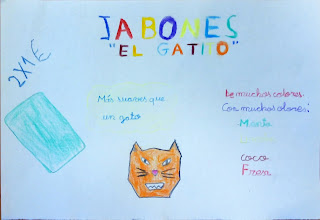 JABONES
"EL GATITO"
2X1€
Más suaves que
un gato
De muchos colores.
Con muchos olores:
Menta
coco
Fresa